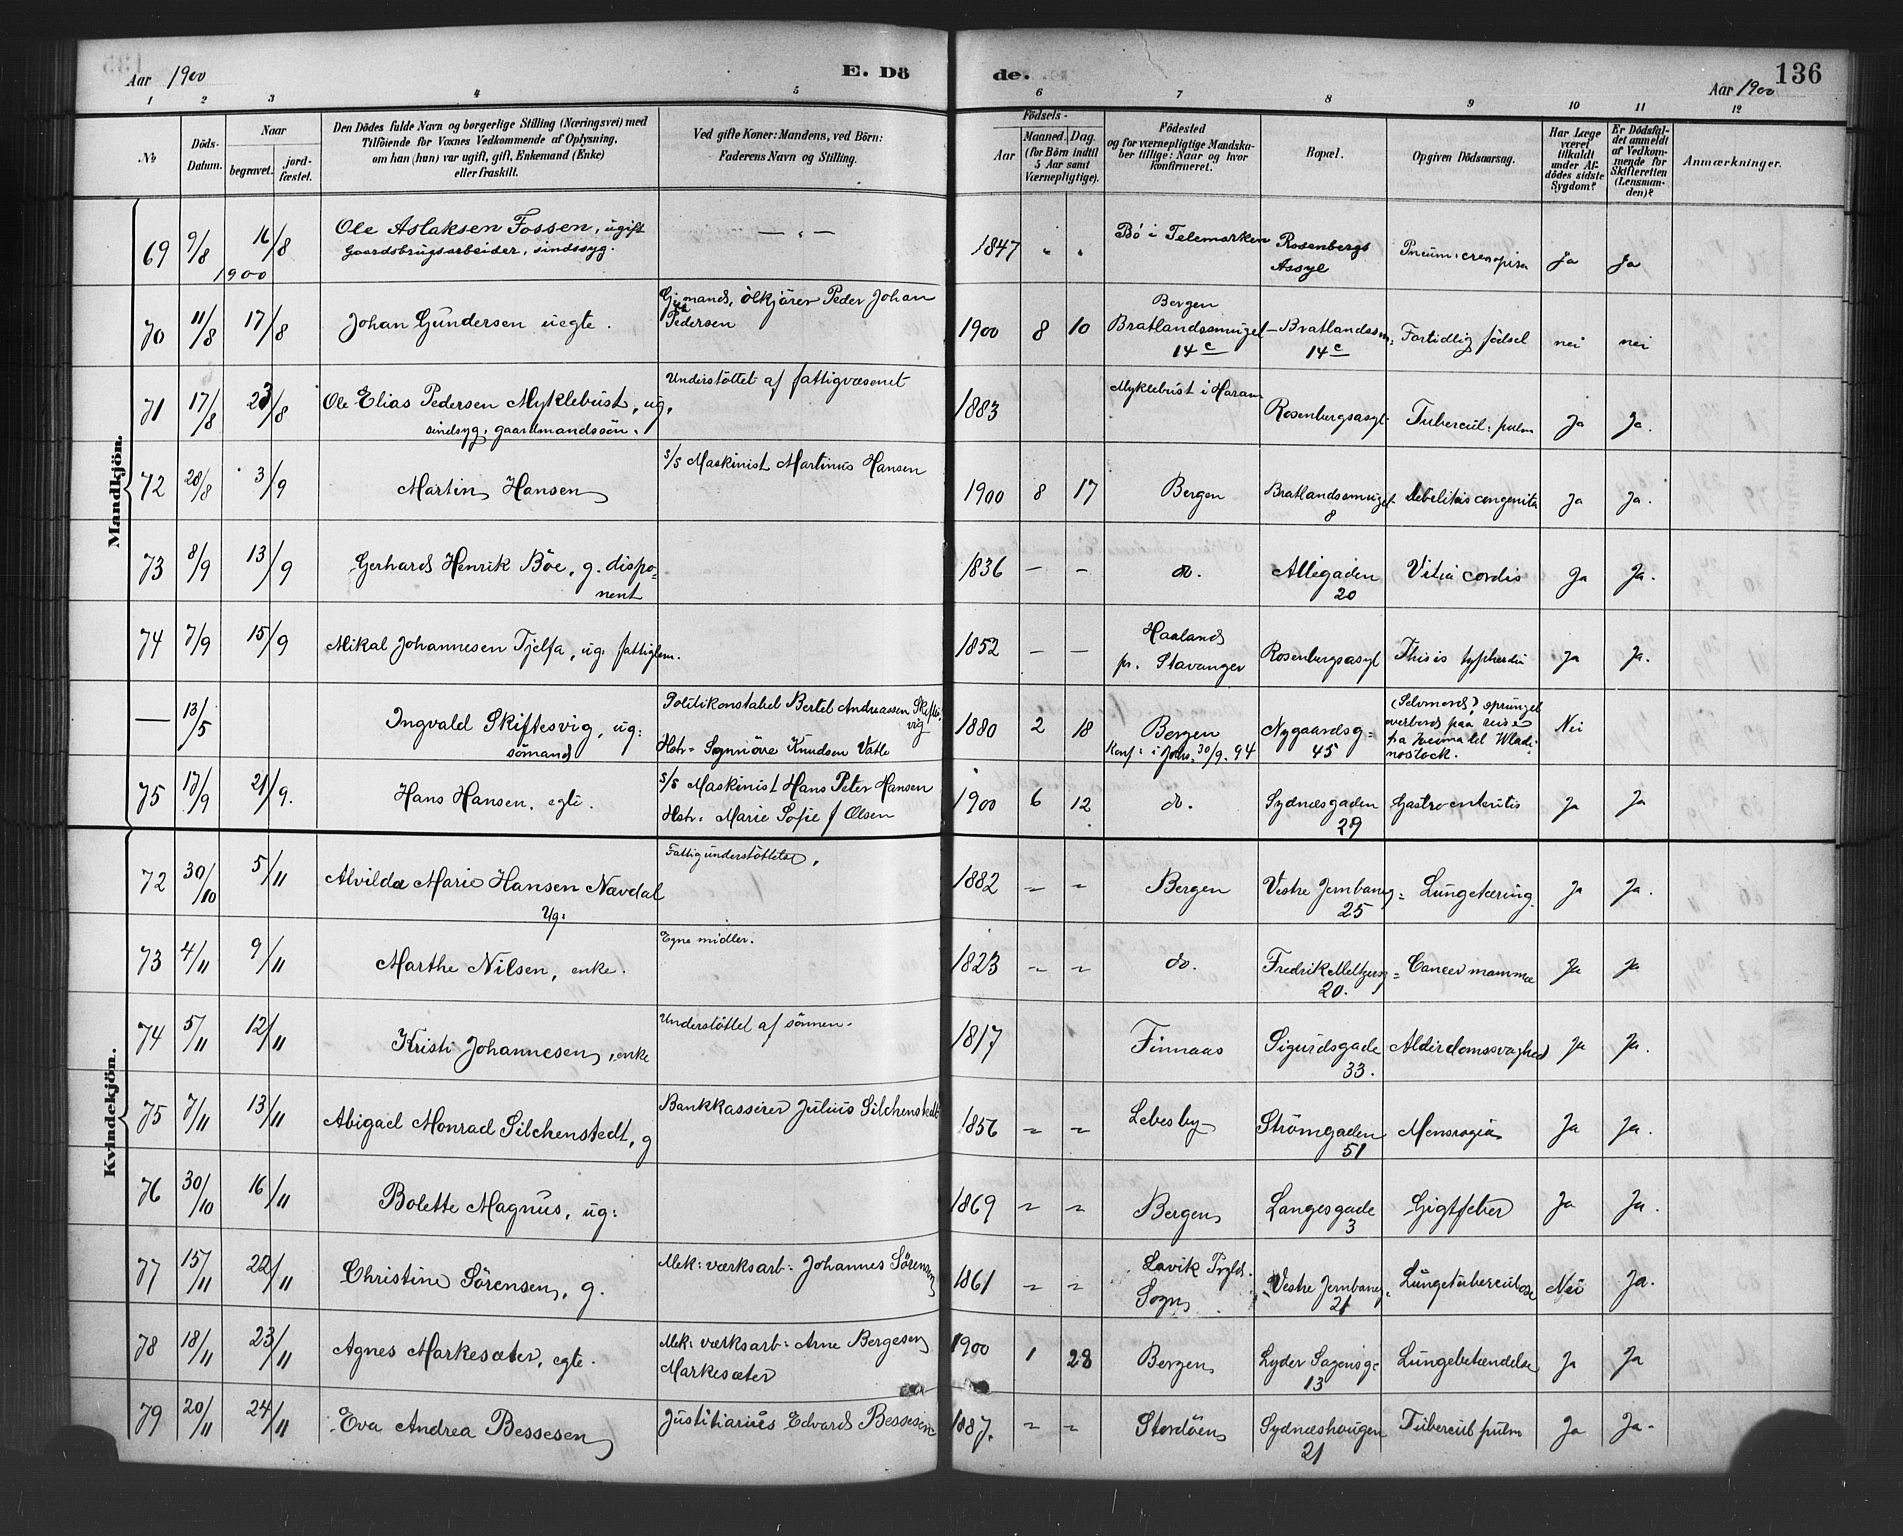 Aar 1900
E. Dö
de.
136
Aar 1900
1 2 3 4 5 6 7 8 9 10 11 12
No
Döds-Datum.
Naar
begravet.
jord-fæstet.
Den Dödes fulde Navn og borgerlige Stilling (Næringsvei) med
Tilföiende for Voxnes Vedkommende af Oplysning,
om han (hun) var ugift, gift, Enkemand (Enke)
eller fraskilt.
Ved gifte Koner: Mandens, ved Börn:
Faderens Navn og Stilling.
Födsels-
Aar
Maaned.
Dag.
(for Börn indtil
5 Aar samt
Værnepligtige).
Födested
og for værnepligtige Mandska-
ber tillige: Naar og hvor
konfirmeret.
Bopæl.
Opgiven Dödsaarsag.
Har Læge
været
tilkaldt
under Af-
dödes sidste
Sygdom?
Er Dödsfal-
det anmeldt
af Vedkom-
mende for
Skifteretten
(Lensman-
den)?
Anmærkninger.
Mandkjön.
69 9/8 16/8 1900 Ole Aslaksen Fossen, ugift
Gaardsbrugsarbeider, sindssyg.
1847 Bö i Telemarken Rosenbergs
Assyl Ja Ja
70 11/8 17/8 Johan Gundersen uegte. mand, ölkjörer Peder Johan
Pedersen
1900 8 10 Bergen
Bratlandssmuget 14c Bratlandssm. 14c Fortidlig födsel nei nei
71 17/8 23/8 Ole Elias Pedersen Myklebust, ug,
sindsyg, gaardmandssön.
Understöttet af fattigvæsenet
1883 Myklebust i Haram Rosenbergsasyl Tubercul: pulm Ja Ja.
72 28/8 3/9 Martin Hansen S/S Maskinist Martinus Hansen
1900 8 17 Bergen Bratlandssmuget 8 debilitas congenita Ja Ja.
73 8/9 13/9 Gerhard Henrik Böe, g. dispo-
nent
1836 – – do. Allegaden 20 Vitia cordis Ja Ja.
74 7/9 15/9 Mikal Johannesen Tjelfa, ug. fattiglem.
1852 – – Haaland
pr. Stavanger Rosenbergsasyl Ja Ja.
— 13/5 Ingvald Skiftesvig, ug:
sömand
Politikonstabel Bertel Andreassen Skiftes-
vig
Hstr= Synnöve Knudsen Vatle
1880 2 18 Bergen
Konf: i Johs. 30/9. 94 Nygaardsg= 45 (Selvmord) sprunget
overbord paa reise
fra til Wladi-
vostock. Nei
75 17/9 21/9. Hans Hansen, egte. S/S Maskinist Hans Peter Hansen
Hstr. Marie Sofie f Olsen
1900 6 12 do. Sydnæsgaden 29 Gastroenteritis Ja Ja
Kvindekjön.
72 30/10 5/11 Alvilda Marie Hansen Navdal
Ug: Fattigunderstöttelse.
1882 Bergen Vestre Jernbaneg= 25 Lungetæring. Ja Ja.
73 4/11 9/11 Marthe Nilsen, enke. Egne midler.
1823 do. Fredrik Meltzersg= 20. Cancer mammæ Ja Ja
74 5/11 12/11 Kristi Johannesen, enke Understöttet af sönnen.
1817 Finnaas Sigurdsgade 33. Alderdomssvaghed Ja Ja.
75 7/11 13/11 Abigael Monrad Silchenstedt, g Bankkasserer Julius Silchenstedt
1856 Lebesby Strömgaden 51 Ja Ja.
76 30/10 16/11 Bolette Magnus, ug:
1869 Bergen Langesgade 3 Gigtfeber Ja Ja.
77 15/11 22/11 Christine Sörensen, g. Mek: værksarb: Johannes Sörensen
1861 Lavik Prgld.
Sogn Vestre Jernbaneg. 21 Lungetuberculose Nei Ja.
78 18/11 23/11 Agnes Markesæter, egte. Mek: værksarb: Arne Bergesen
Markesæter
1900 1 28 Bergen Lyder Sagensg. 13 Lungebetændelse Ja Ja
79 20/11 24/11 Eva Andrea Bessesen Justitiarius Edvard Bessesen
1887. Stordöen Sydnæshaugen 21 Tubercul pulm Ja Ja.